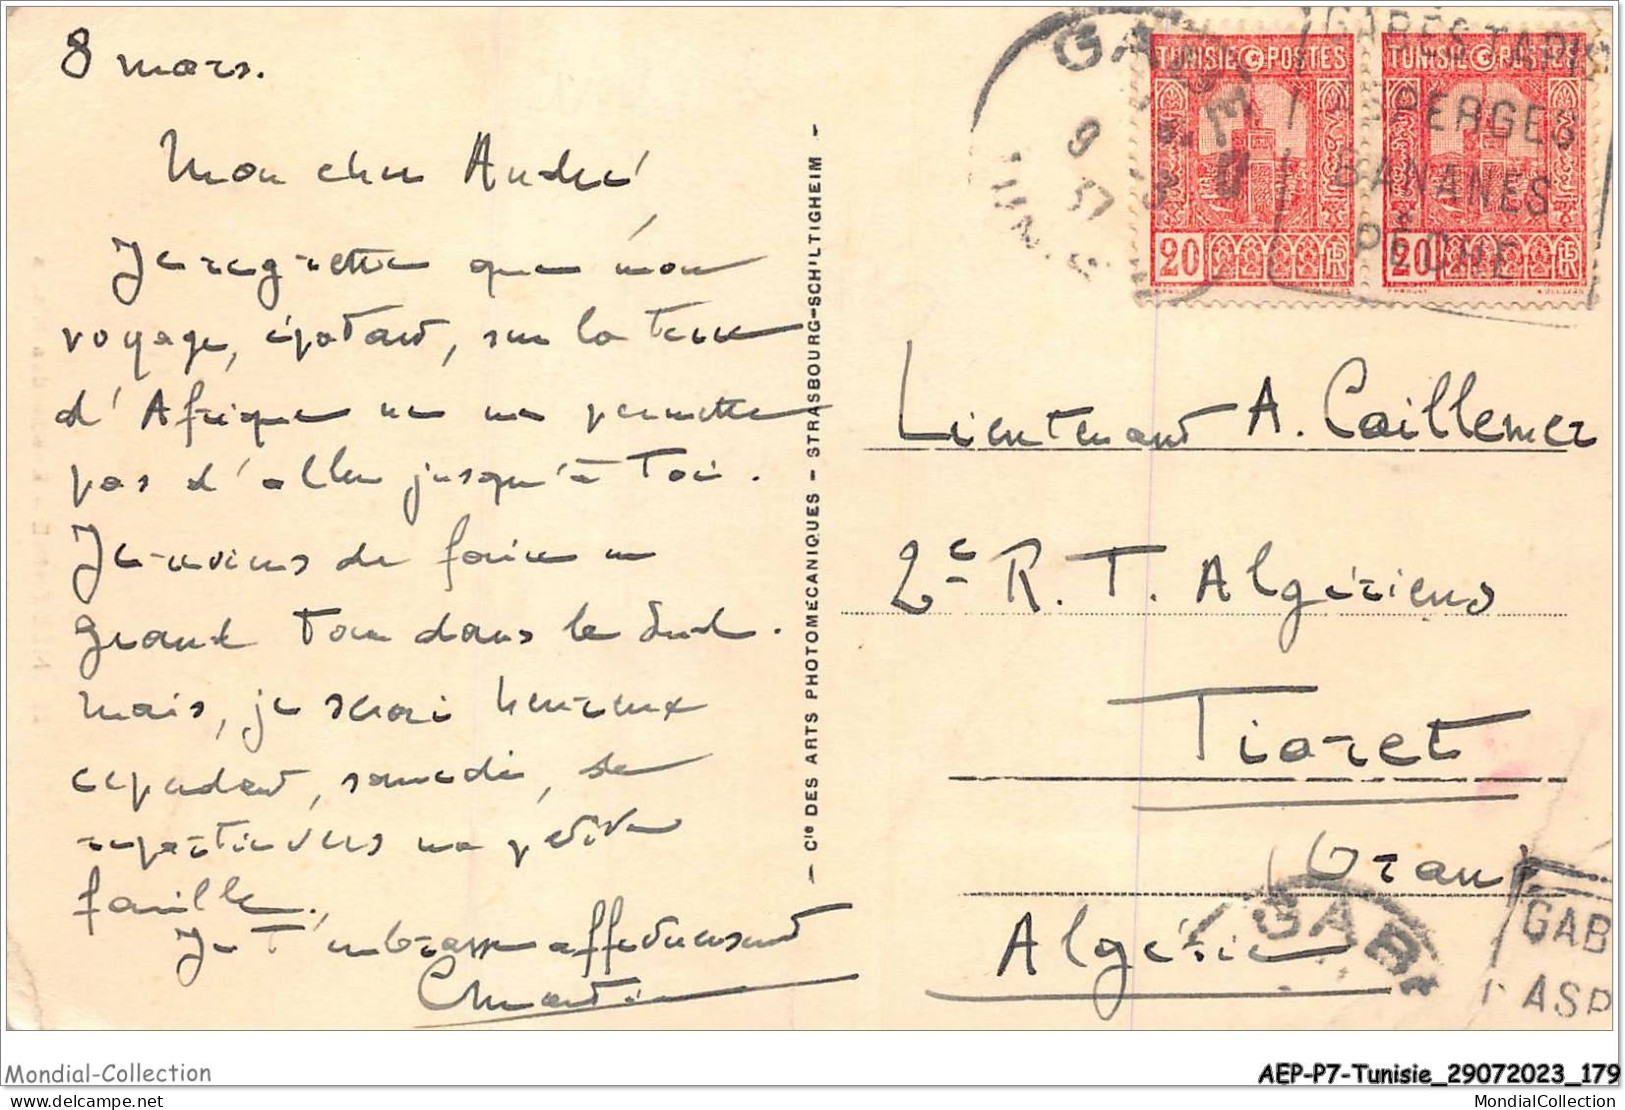 8 mars.
Mon cher André
Je regrette que mon
voyage, épatant, sur la terre
d'Afrique ne me permette
pas d'aller jusqu'à Toi.
Je reviens de faire un
grand Tour dans le Sud.
Mais, je serai heureux
cependant, samedi, de
repartir vers ma petite
famille.
Je T'embrasse affectueusement
CMartin
- Cie DES ARTS PHOTOMECANIQUES - STRASBOURG-SCHILTIGHEIM -
TUNISIE POSTES
20 RF
TUNISIE POSTES
20 RF
GABES
9
3
37
TUNISIE
GABES TAPIS
ASPERGES
BANANES
PÊCHE
Lieutenant A. Caillemer
2e R. T. Algériens
Tiaret
Oran
Algérie
GABE
GAB
ASP
Mondial-Collection
AEP-P7-Tunisie_29072023_179
delcampe.net
MondialCollection